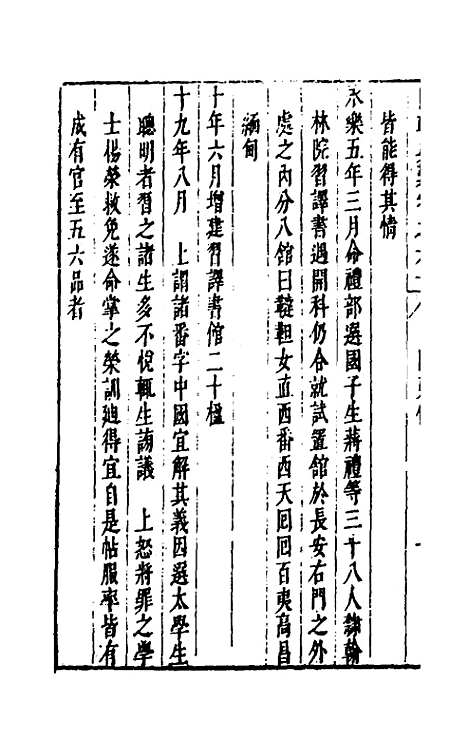 皆能得其情
永樂五年三月命禮部選國子生蔣禮等三十八人隷翰
林院習譯書遇開科仍令就試置館於長安右門之外
處之內分八館曰韃靼女直西番西天回回百夷高昌
緬甸
十年六月增建習譯書館二十楹
十九年八月　上謂諸番字中國宜解其義因選太學生
聰明者習之諸生多不悅輒生謗議　上怒將罪之學
士楊榮救免遂命掌之榮訓廸得宜自是帖服率皆有
成有官至五六品者